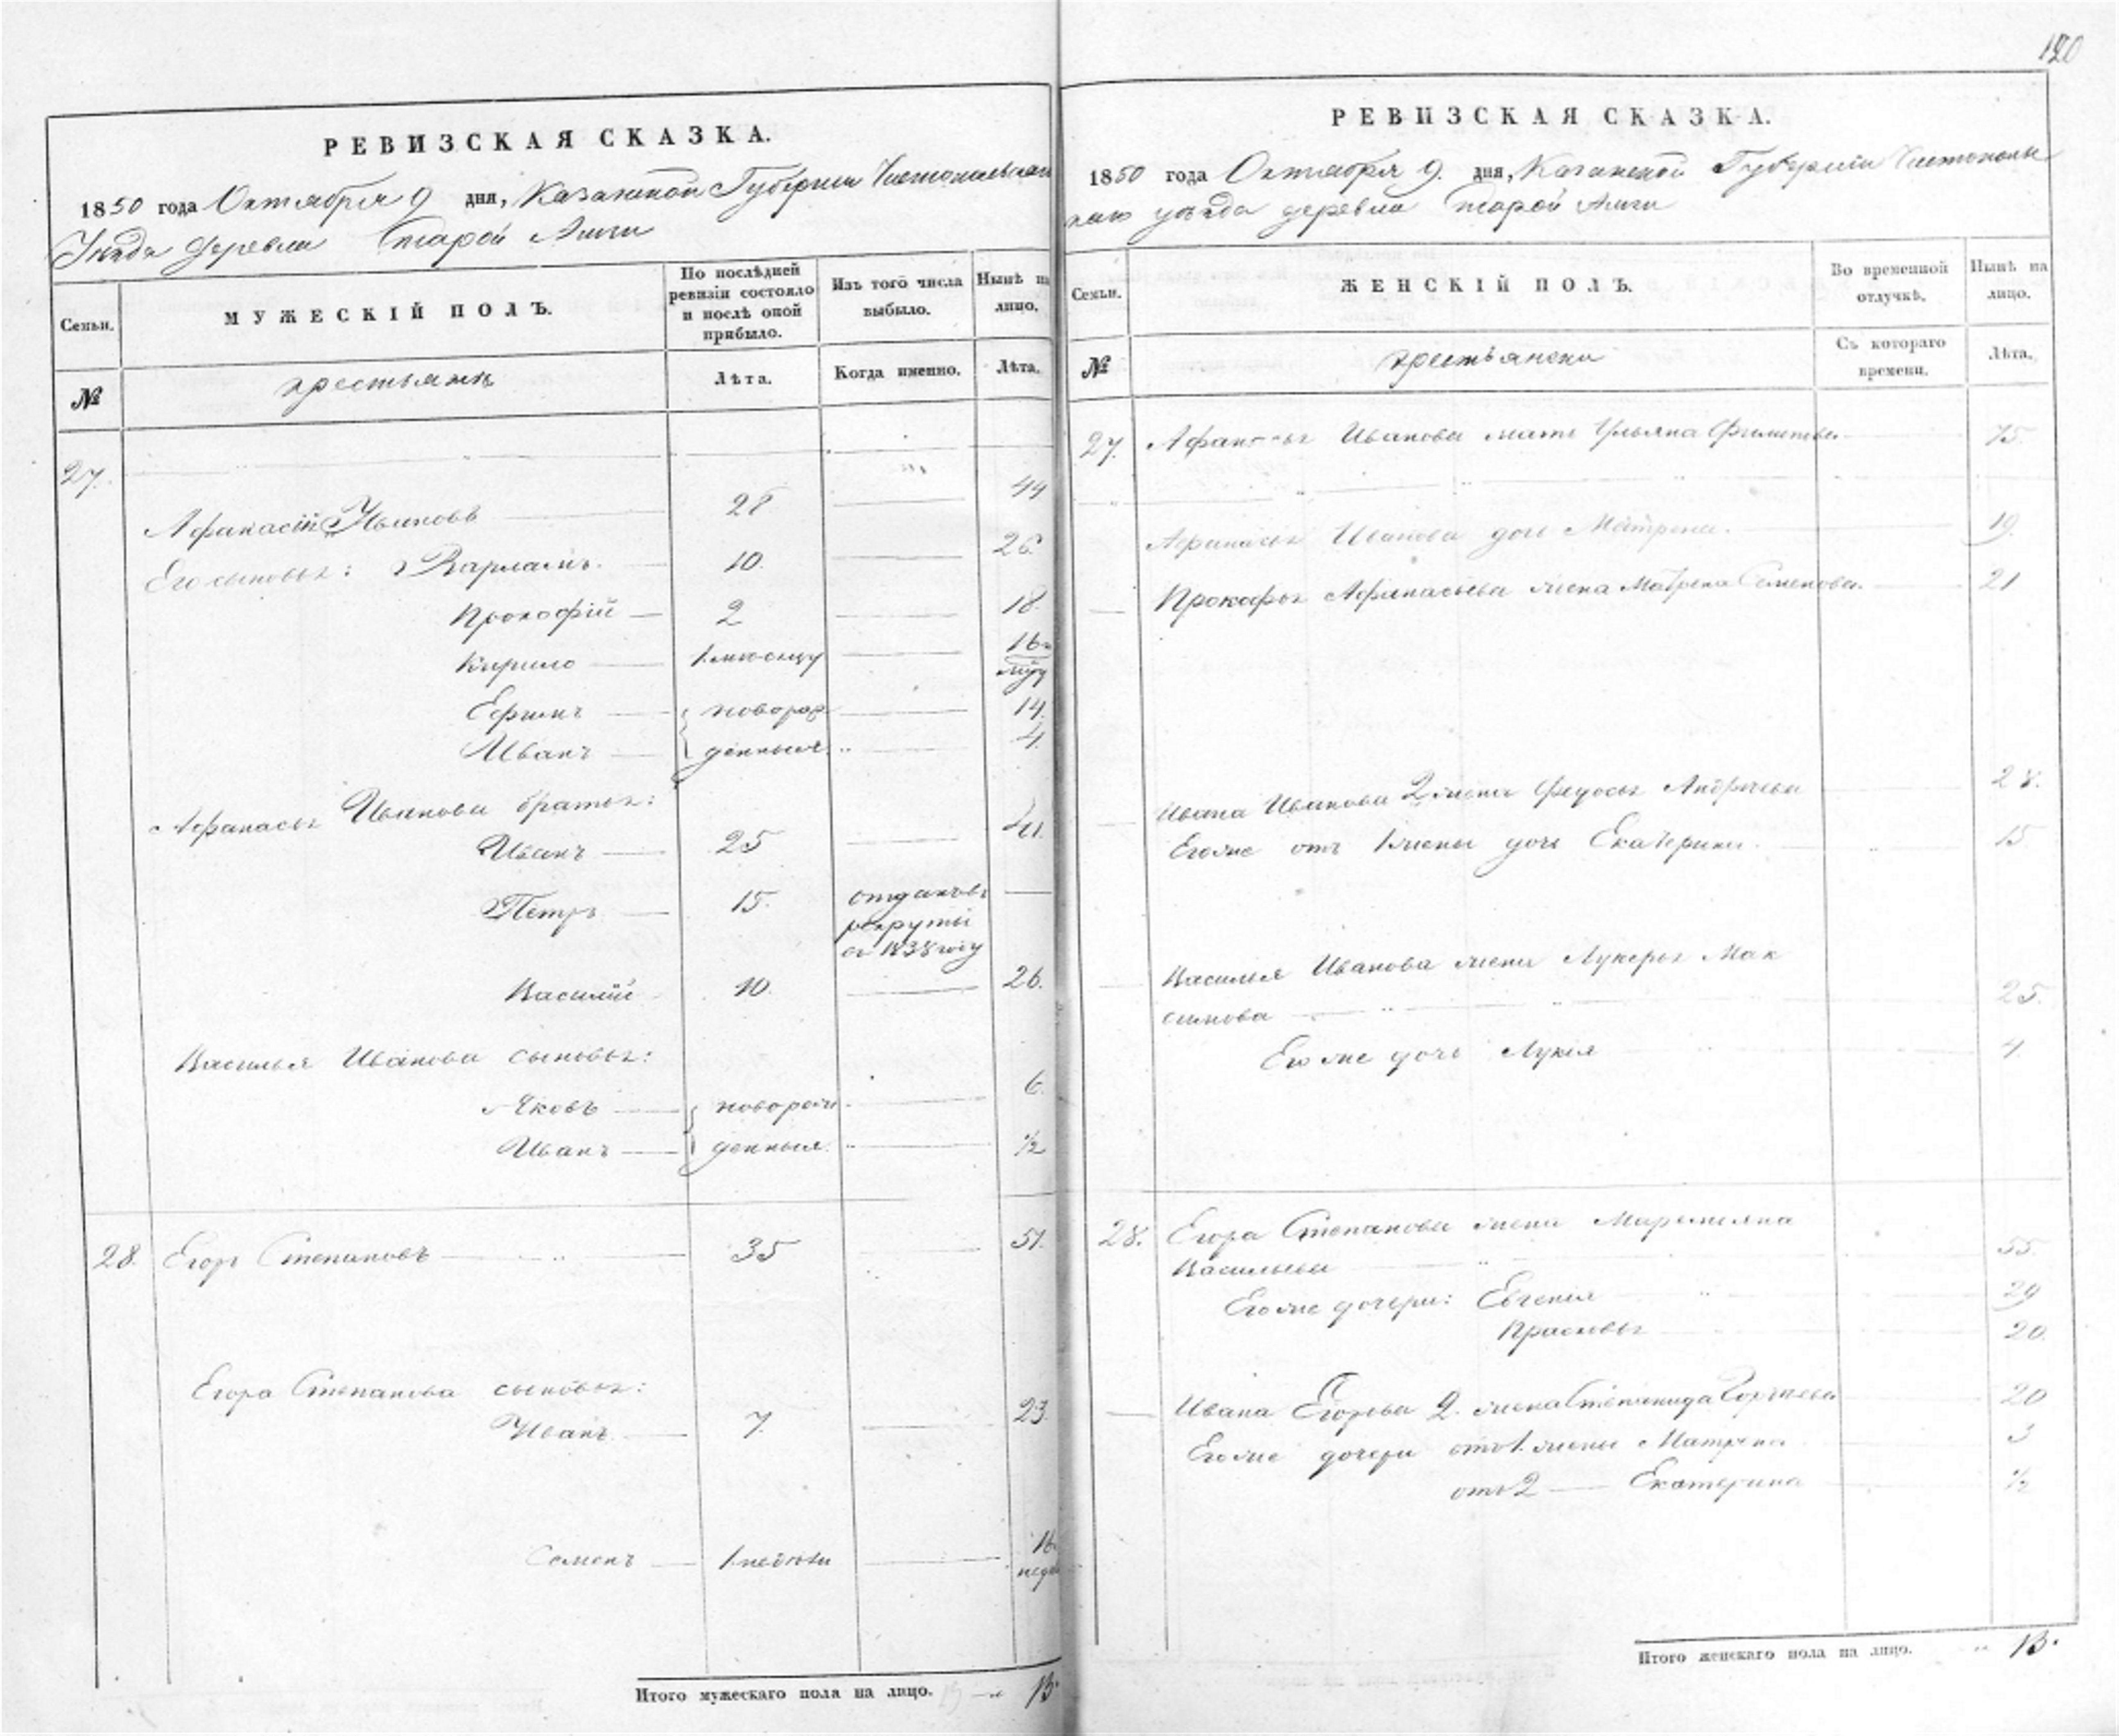 120
РЕВИЗСКАЯ СКАЗКА.
1850 года Октября 9 дня, Казанской Губернии Чистопольскаго
Уѣзда деревни Старой Амзи
Семьи. МУЖЕСКІЙ ПОЛЪ. По послѣдней ревизіи состояло и послѣ оной прибыло. Изъ того числа выбыло. Нынѣ на лицо.
№ крестьянъ Лѣта. Когда именно. Лѣта.
27.
Афанасій Ивановъ 28 44
Его сыновья: Варламъ. 10. 26.
Прокофій 2 18.
Кирило 1 мѣсяцу 16
Ефимъ новорож 14.
Иванъ денныя 4.
Афанасья Иванова братья:
Иванъ 25 41.
Петръ 15. отданъ въ
рекруты
въ 1838 году
Василій 10. 26.
Василья Иванова сыновья:
Яковъ новорож 6.
Иванъ денныя. 1/2
28. Егоръ Степановъ 35 51.
Егора Степанова сыновья:
Иванъ 7. 23.
Семенъ 1 недѣли 16
недѣ
Итого мужескаго пола на лицо. 13.
РЕВИЗСКАЯ СКАЗКА.
1850 года Октября 9. дня, Казанской Губерніи Чистополь
скаго уѣзда деревни Старой Амзи
Семьи. ЖЕНСКІЙ ПОЛЪ. Во временной отлучкѣ. Нынѣ на лицо.
№ крестьянски Съ котораго времени. Лѣта.
27. Афанасья Иванова мать Ульяна Филипова 75.
Афанасья Иванова дочь Матрена. 19.
Прокофья Афанасьева жена Матрена Семенова. 21
Ивана Иванова 2 жена Федосья Андреева 28.
Его же отъ 1 жены дочь Екатерина. 15
Василья Иванова жена Лукерья Мак
симова 25.
Его же дочь Лукія 4.
28. Егора Степанова жена Маремьяна
Васильева 55.
Его же дочери: Евгенія 29
Прасковья 20.
Ивана Егорова 2. жена Степанида 20
Его же дочери отъ 1. жены Матрена 3
отъ 2 — Екатерина 1/2
Итого женскаго пола на лицо. 13.